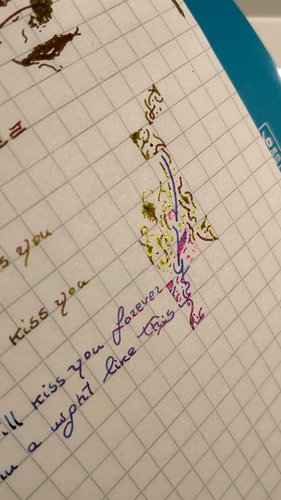 s you
kiss you
ill kiss you forever
a night like this